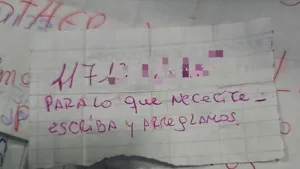 OTHER
1171
PARA LO QUE NECECITE -
ESCRIBA Y ARREGLAMOS.